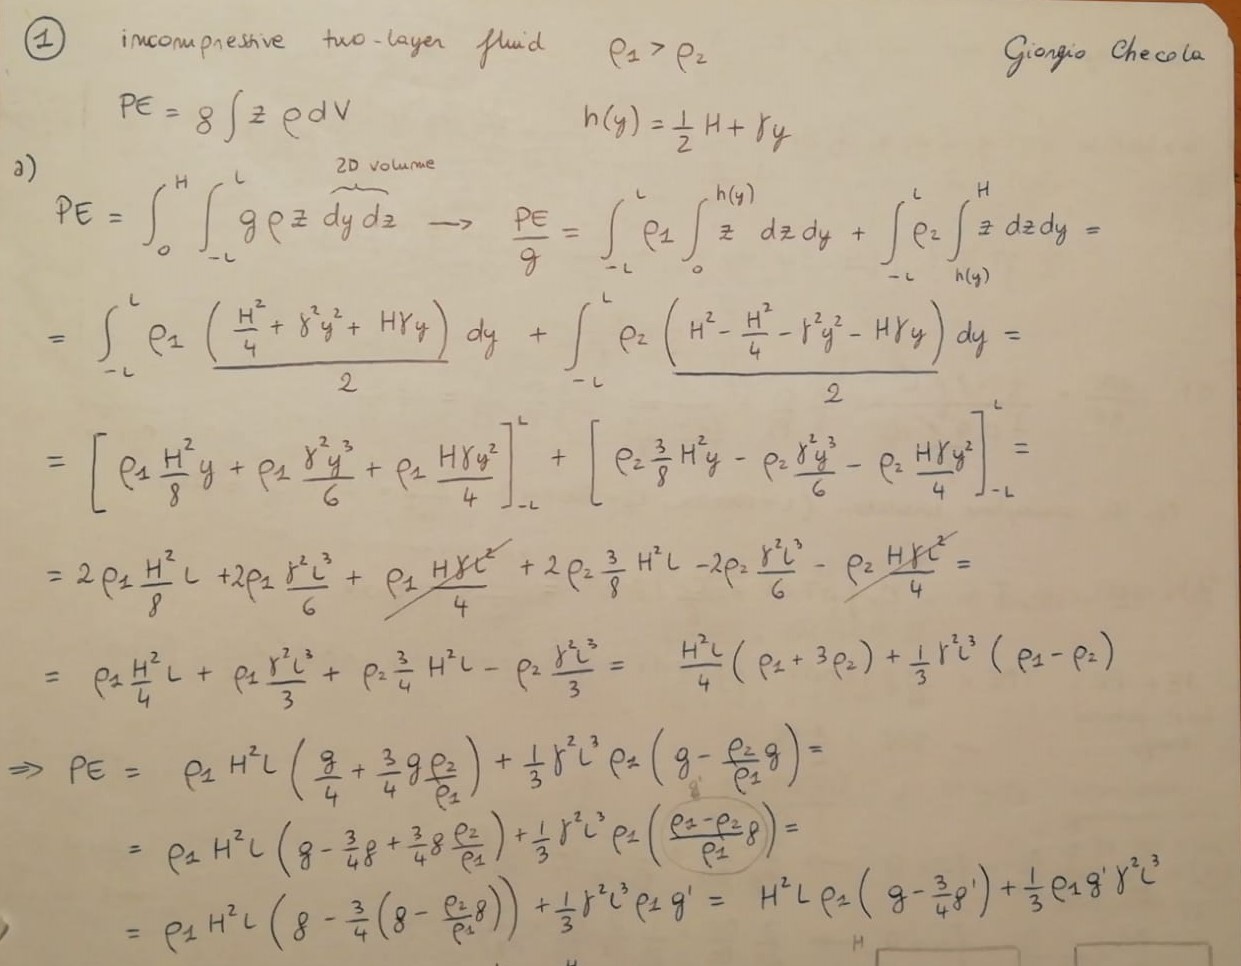 ① incompressive two-layer fluid ρ₁ > ρ₂ Giorgio Checola
PE = g ∫ z ρ dV h(y) = 1/2 H + γy
a) 2D volume
PE = ∫₀^H ∫_{-L}^L g ρ z dy dz → PE/g = ∫_{-L}^L ρ₁ ∫₀^{h(y)} z dz dy + ∫_{-L}^L ρ₂ ∫_{h(y)}^H z dz dy =
= ∫_{-L}^L ρ₁ (H²/4 + γ²y² + Hγy)/2 dy + ∫_{-L}^L ρ₂ (H² - H²/4 - γ²y² - Hγy)/2 dy =
= [ρ₁ H²/8 y + ρ₁ γ²y³/6 + ρ₁ Hγy²/4]_{-L}^L + [ρ₂ 3/8 H²y - ρ₂ γ²y³/6 - ρ₂ Hγy²/4]_{-L}^L =
= 2ρ₁ H²/8 L + 2ρ₁ γ²L³/6 + ρ₁ HγL²/4 + 2ρ₂ 3/8 H²L - 2ρ₂ γ²L³/6 - ρ₂ HγL²/4 =
= ρ₁ H²/4 L + ρ₁ γ²L³/3 + ρ₂ 3/4 H²L - ρ₂ γ²L³/3 = H²L/4 (ρ₁ + 3ρ₂) + 1/3 γ²L³ (ρ₁ - ρ₂)
⇒ PE = ρ₁ H²L (g/4 + 3/4 g ρ₂/ρ₁) + 1/3 γ²L³ ρ₁ (g - ρ₂/ρ₁ g) =
g'
= ρ₁ H²L (g - 3/4 g + 3/4 g ρ₂/ρ₁) + 1/3 γ²L³ ρ₁ ((ρ₁-ρ₂)/ρ₁ g) =
= ρ₁ H²L (g - 3/4 (g - ρ₂/ρ₁ g)) + 1/3 γ²L³ ρ₁ g' = H²L ρ₁ (g - 3/4 g') + 1/3 ρ₁ g' γ²L³
H
H